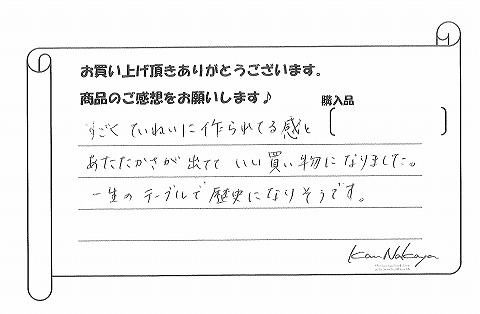 お買い上げ頂きありがとうございます。
商品のご感想をお願いします♪
購入品
すごくていねいに作られてる感と
あたたかさが出てていい買い物になりました。
一生のテーブルで歴史になりそうです。
Kan Nakaya